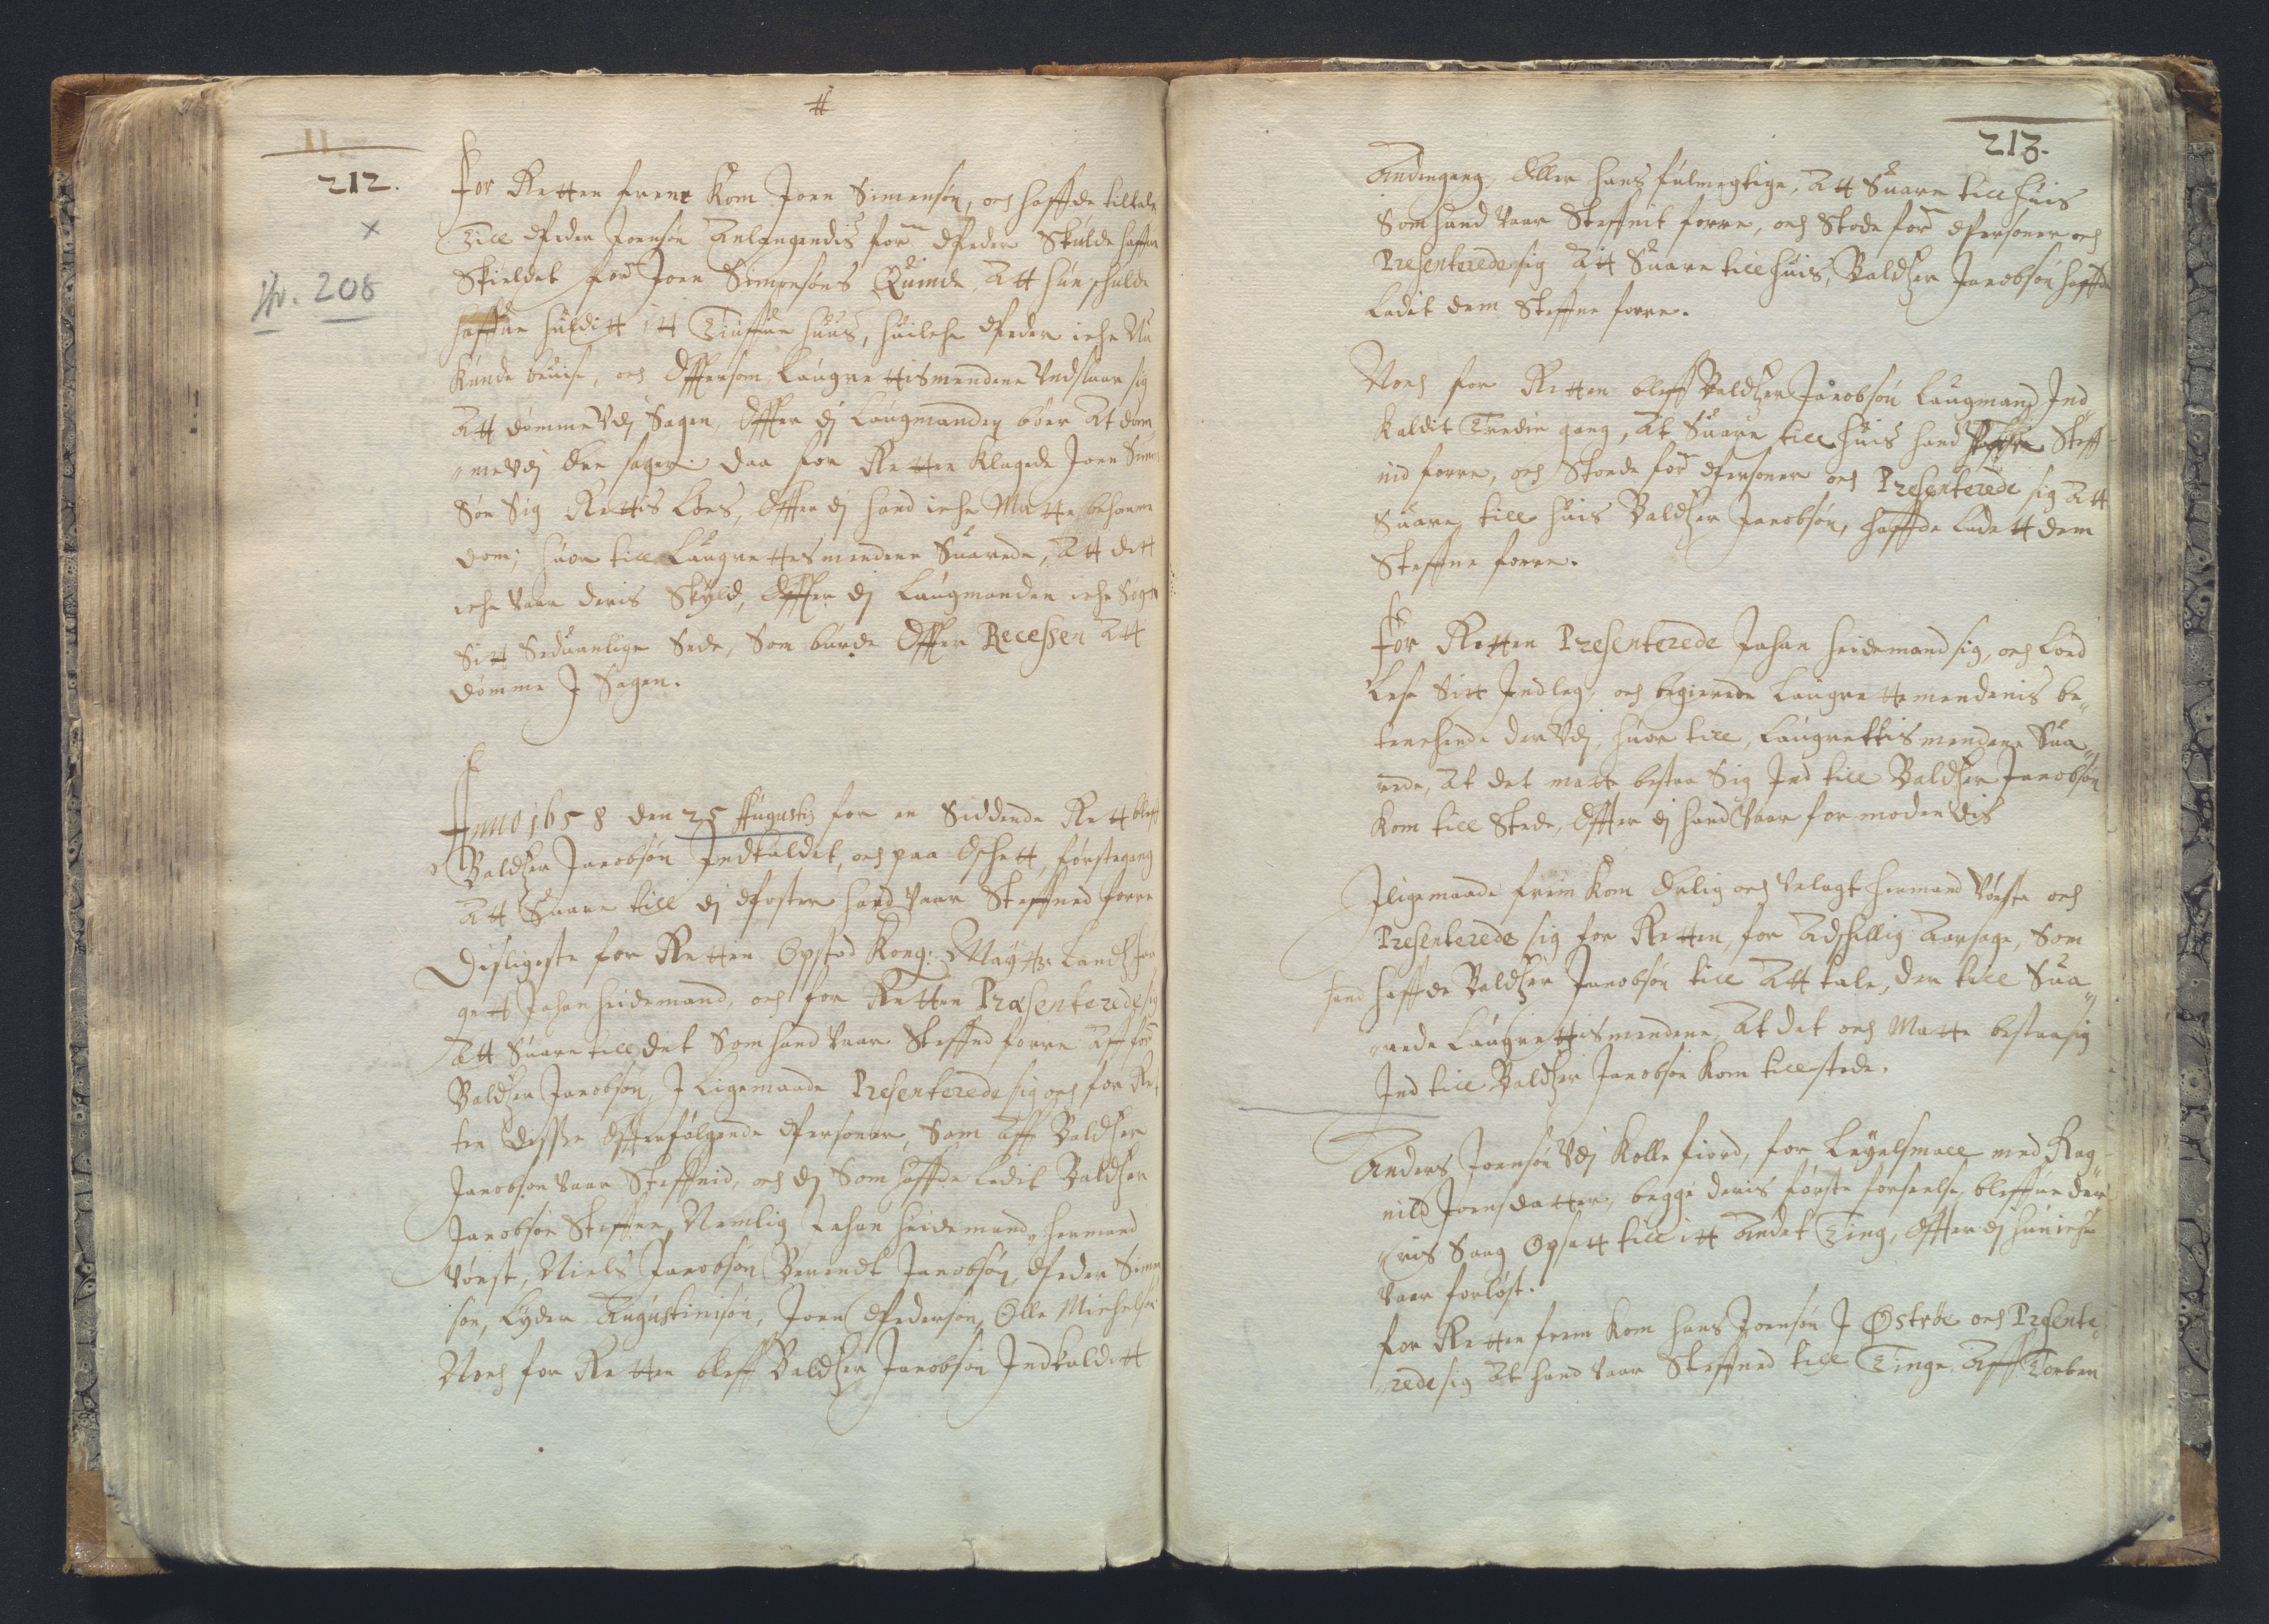 212.
×
Jfr. 208
For Retten frem Kom Joen Simensøn, och haffde tiltale
Till Peder Joensøn Anlangendis forn Peder Skulde haffue
Skieldet for Joen Simensøns Quinde, Att hun schulde
haffue hulditt itt Tiuffue huus, huilche Peder iche Nu
Kunde beuise, och Effersom Laugrettismendene Vndslaar sig
Att dømme Vdj Sagen, Effter dj Laugmanden bøer At døm„
„me Vdj Ere sager. Daa for Retten Klagede Joen Simen
Søn Sig Rettis Løes, Effter dj hand iche Matte bekomme
dom; huor till Laugrettesmendene Suarede, Att dett
iche vaar deris Skyld, Effter dj Laugmanden iche Søger
Sitt Seduanlige Sede, Som burde Effter Recessen Att
dømme J Sagen.
Anno 1658 den 25 Augustij for en Siddende Rett bleff
Baldtzer Jacobsøn Indkaldet, och paa Eschett, førstegang
Att Suare till dj Poster hand vaar Steffned forre
Disligeste for Retten Opstod Kong: Maytts: Landtz for
gett Johan heidemand, och for Retten Præsenterede sig
Att Suare till det Som hand vaar Steffned forre Aff forn
Baldtzer Jacobsøn, J Ligemaade Presenterede sig och for Re
ten disse Effterfølgende Personer, Som Aff Baldtzer
Jacobsøn vaar Steffnid, och dj Som haffde Ladit Baldtzer
Jacobsøn Steffne, Nemlig Johan heidemand, hermand
Vørst, Niels Jacobsøn Berendt Jacobsøn, Peder Simen
søn, Lyder Augustinisøn, Joen Pedersøn, Olle Michelsøn
Noch for Retten bleff Baldtzer Jacobsøn Indkalditt
213.
Andengang, Eller hans fulmegtige, Att Suare till huis
Som hand vaar Steffnit forre, och Stode forn Personer och
Presenterede sig Att Suare till huis, Baldtzer Jacobsøn haffde
Ladit dem Steffne forre.
Noch for Retten bleff Baldtzer Jacobsøn Laugmand Ind
Kaldit Tredie gang, At Suare till huis hand Steff
nid forre, och Stoede forn Personer och Presenterede sig Att
Suare till huis Baldtzer Jacobsøn, haffde Ladett dem
Steffne forre.
For Retten Presenterede Johan heidemand sig, och Loed
Lese Sitt Indleg, och begierede Laugrettemendenis be„
tenchende der Vdj, huor till, Laugrettismendene Sua„
rede, At det matte bestaa Sig Ind till Baldtzer Jacobsøn
Kom till Stede, Effter dj hand vaar for moden dis
Jligemaade frem Kom Erlig och Velagt hermand Vørste och
Presenterede sig for Retten, for Adschillig Aarsage, Som
hand haffde Baldtzer Jacobsøn till Att tale, der till Sua„
„rede Laugrettismendene, At det och Matte bestaa sig
Ind till Baldtzer Jacobsøn Kom till stede.
Anders Joensøn Vdj Kollefiord, for Leyelsmaell med Rag
nild Joensdatter, begge deris første forseelse, bleffue de„
„ris Saag Opsatt till itt Andet Ting, Effter dj hun iche
vaar forløst.
For Retten frem Kom hans Joensøn J Østrøe och Presente
„rede sig At hand vaar Steffned till Tinge Aff Torben